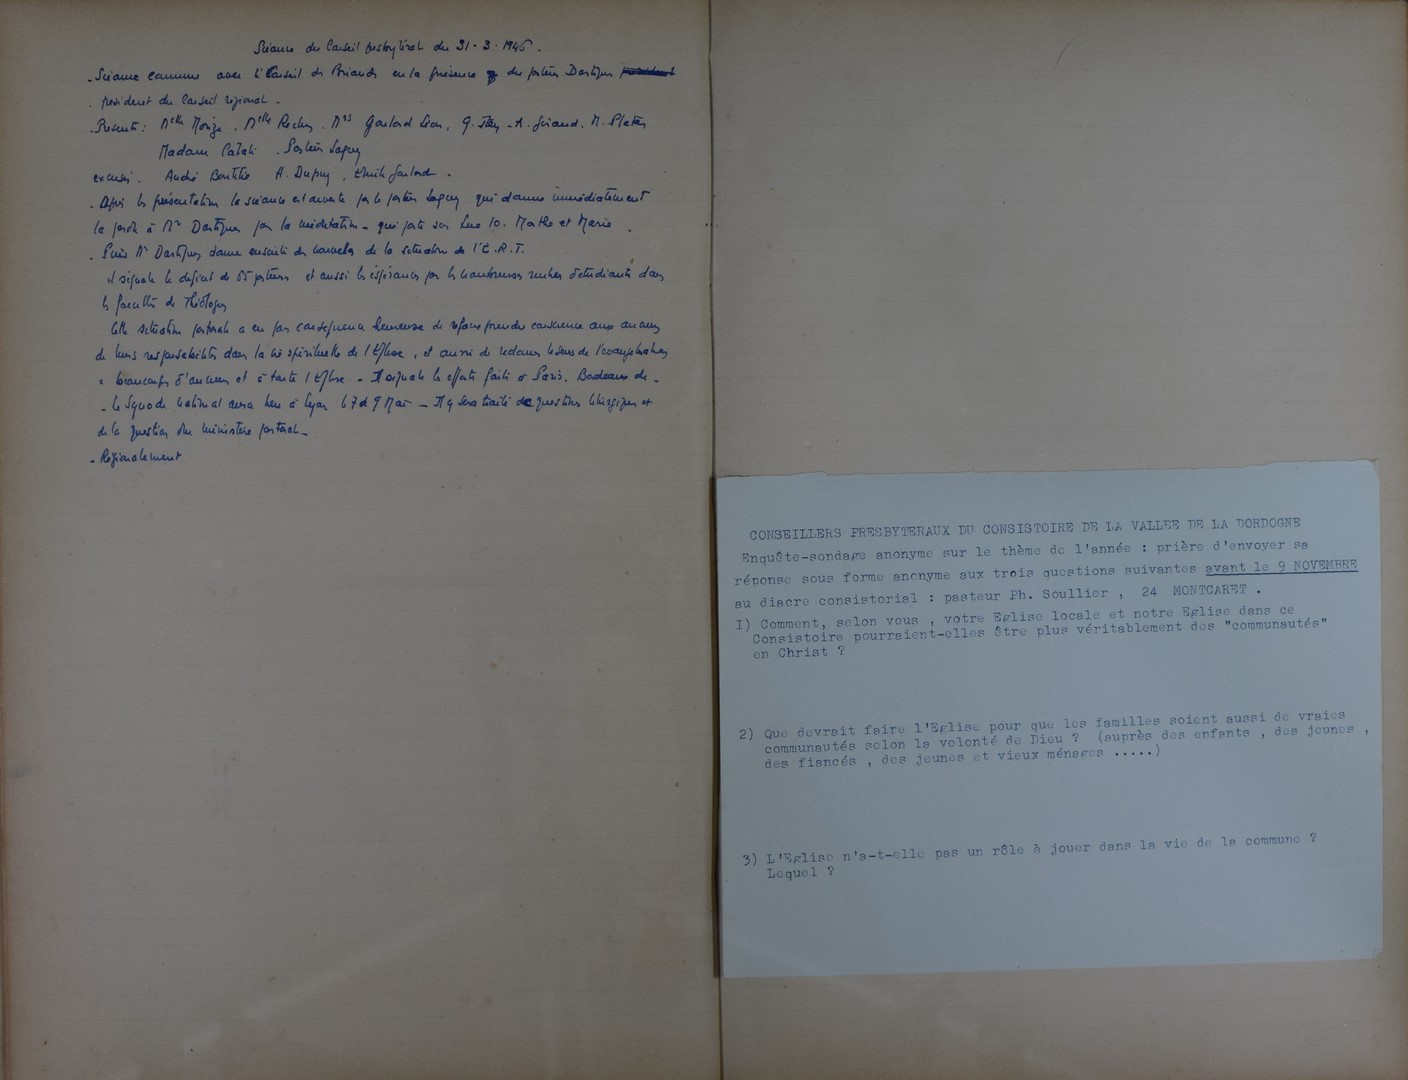 Séance du Conseil presbytéral du 31-3-1946.
- Séance commune avec le Conseil de Briands en la présence du pasteur Dartigue
président du Conseil régional -
- Présents : Melle Monge, Melle Rechy. Mrs Goulard Léon, A. Giraud, M.
Madame - Pasteur
excusés. André H. Dupuy, Emile Goulard.
- Après les présentations la séance est ouverte par le pasteur qui donne immédiatement
la parole à Mr Dartigue pour la méditation - qui porte sur Luc 10. Marthe et Marie.
- Puis Mr Dartigue donne ensuite des nouvelles de la situation de l'E.R.F.
il signale le déficit de 65 pasteurs et aussi les espérances par les nombreuses d'étudiants dans
les facultés de Théologie
Cette situation pastorale a eu pour conséquence heureuse de prendre conscience aux anciens
de leurs responsabilités dans la vie spirituelle de l'Eglise, et aussi de redonner le sens de l'évangélisation
à beaucoup d'anciens et à toute l'Eglise - Il signale les efforts faits à Paris, Bordeaux
- Le Synode national aura lieu à Lyon le 7 et 9 Mai - Il y sera traité de questions liturgiques et
de la question du ministère pastoral -
- Régionalement
CONSEILLERS PRESBYTERAUX DU CONSISTOIRE DE LA VALLEE DE LA DORDOGNE
Enquête-sondage anonyme sur le thème de l'année : prière d'envoyer sa
réponse sous forme anonyme aux trois questions suivantes avant le 9 NOVEMBRE
au diacre consistorial : pasteur Ph. Soullier , 24 MONTCARET .
I) Comment, selon vous , votre Eglise locale et notre Eglise dans ce
Consistoire pourraient-elles être plus véritablement des "communautés"
en Christ ?
2) Que devrait faire l'Eglise pour que les familles soient aussi de vraies
communautés selon la volonté de Dieu ? (auprès des enfants , des jeunes ,
des fiancés , des jeunes et vieux ménages .....)
3) L'Eglise n'a-t-elle pas un rôle à jouer dans la vie de la commune ?
Lequel ?